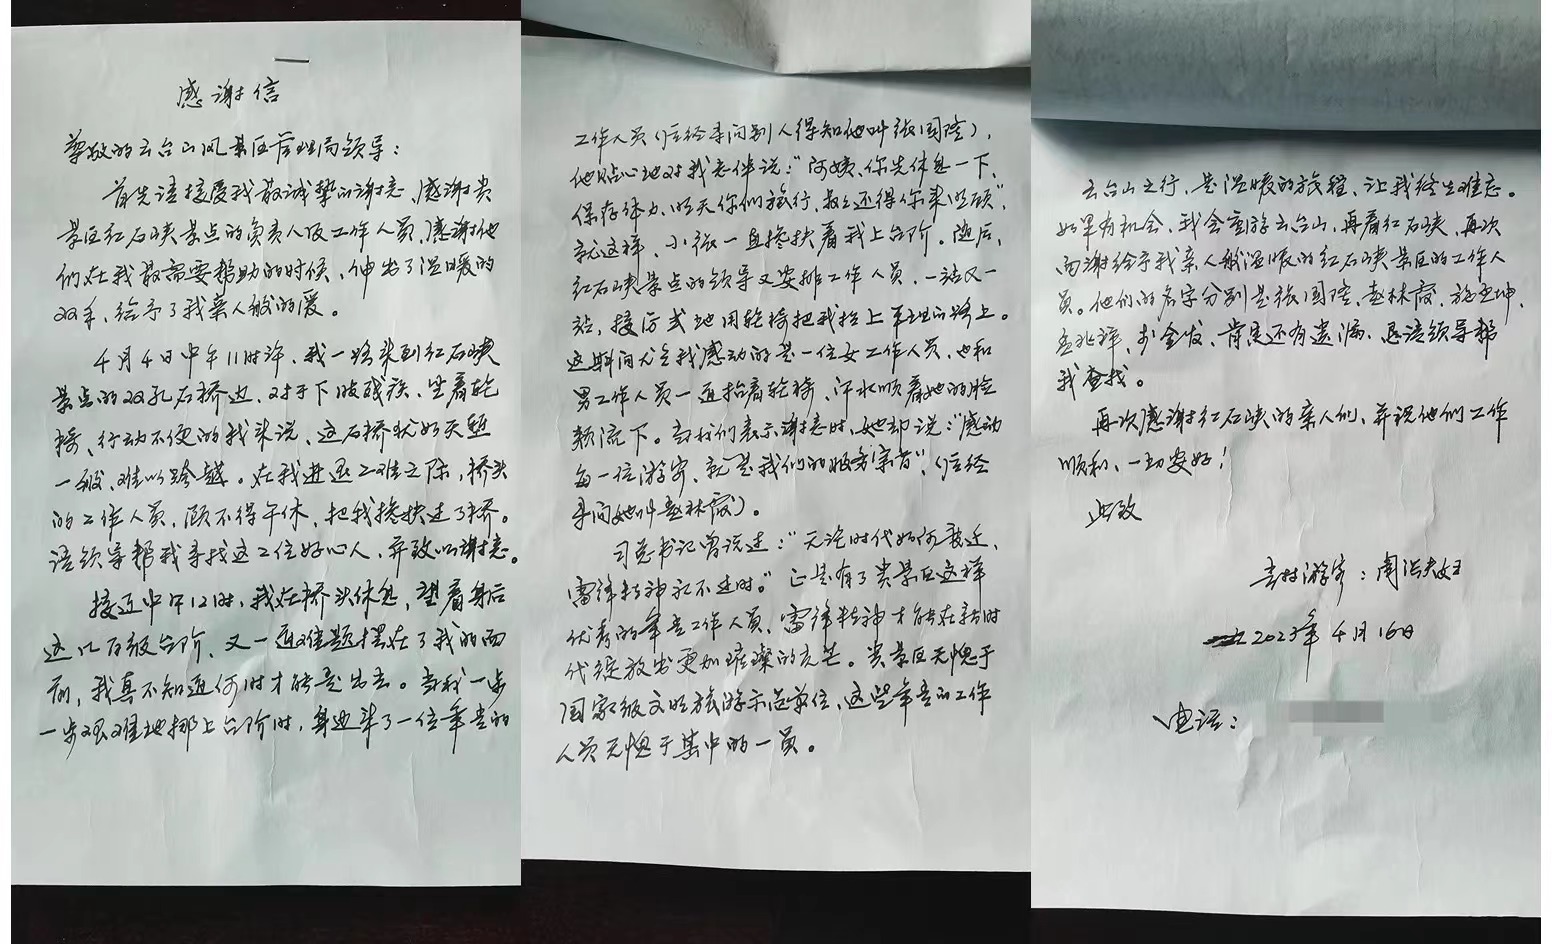 感谢信
尊敬的云台山风景区管理局领导：
首先请接受我最诚挚的谢意，感谢贵
景区红石峡景点的负责人及工作人员，感谢他
们在我最需要帮助的时候，伸出了温暖的
双手，给予了我亲人般的爱。
4月4日中午11时许，我一路来到红石峡
景点的双孔石桥边，对于下肢残疾、坐着轮
椅、行动不便的我来说，这石桥犹如天堑
一般，难以跨越。在我进退二难之际，桥头
的工作人员，顾不得午休，把我搀扶过了桥。
请领导帮我寻找这二位好心人，并致以谢意。
接近中午12时，我在桥头休息，望着身后
这几百级台阶，又一道难题摆在了我的面
前，我真不知道何时才能走出去。当我一步
一步艰难地挪上台阶时，身边来了一位年青的
工作人员（后经寻问别人得知他叫张国陪），
他贴心地对我老伴说：“阿姨，你先休息一下，
保存体力，明天你们旅行，叔叔还得你来照顾”，
就这样，小张一直搀扶着我上台阶。随后，
红石峡景点的领导又安排工作人员，一站又一
站，接力式地用轮椅把我抬上平坦的路上。
这期间尤令我感动的是一位女工作人员，也和
男工作人员一道抬着轮椅，汗水顺着她的脸
颊流下。当我们表示谢意时，她却说：“感动
每一位游客，就是我们的服务宗旨”，（后经
寻问她叫赵林霞）。
习总书记曾说过：“无论时代如何变迁，
雷锋精神永不过时。”正是有了贵景区这样
优秀的年青工作人员，雷锋精神才能在新时
代绽放出更加璀璨的光芒。贵景区无愧于
国家级文明旅游示范单位，这些年青的工作
人员无愧于其中的一员。
云台山之行，是温暖的旅程，让我终生难忘。
如果有机会，我会重游云台山，再看红石峡，再次
向谢给予我亲人般温暖的红石峡景区的工作人
员。他们的名字分别是张国陪、赵林霞、
肯定还有遗漏，恳请领导帮
我查找。
再次感谢红石峡的亲人们，并祝他们工作
顺利，一切安好！
此致
游客：周
2023年4月16日
电话：